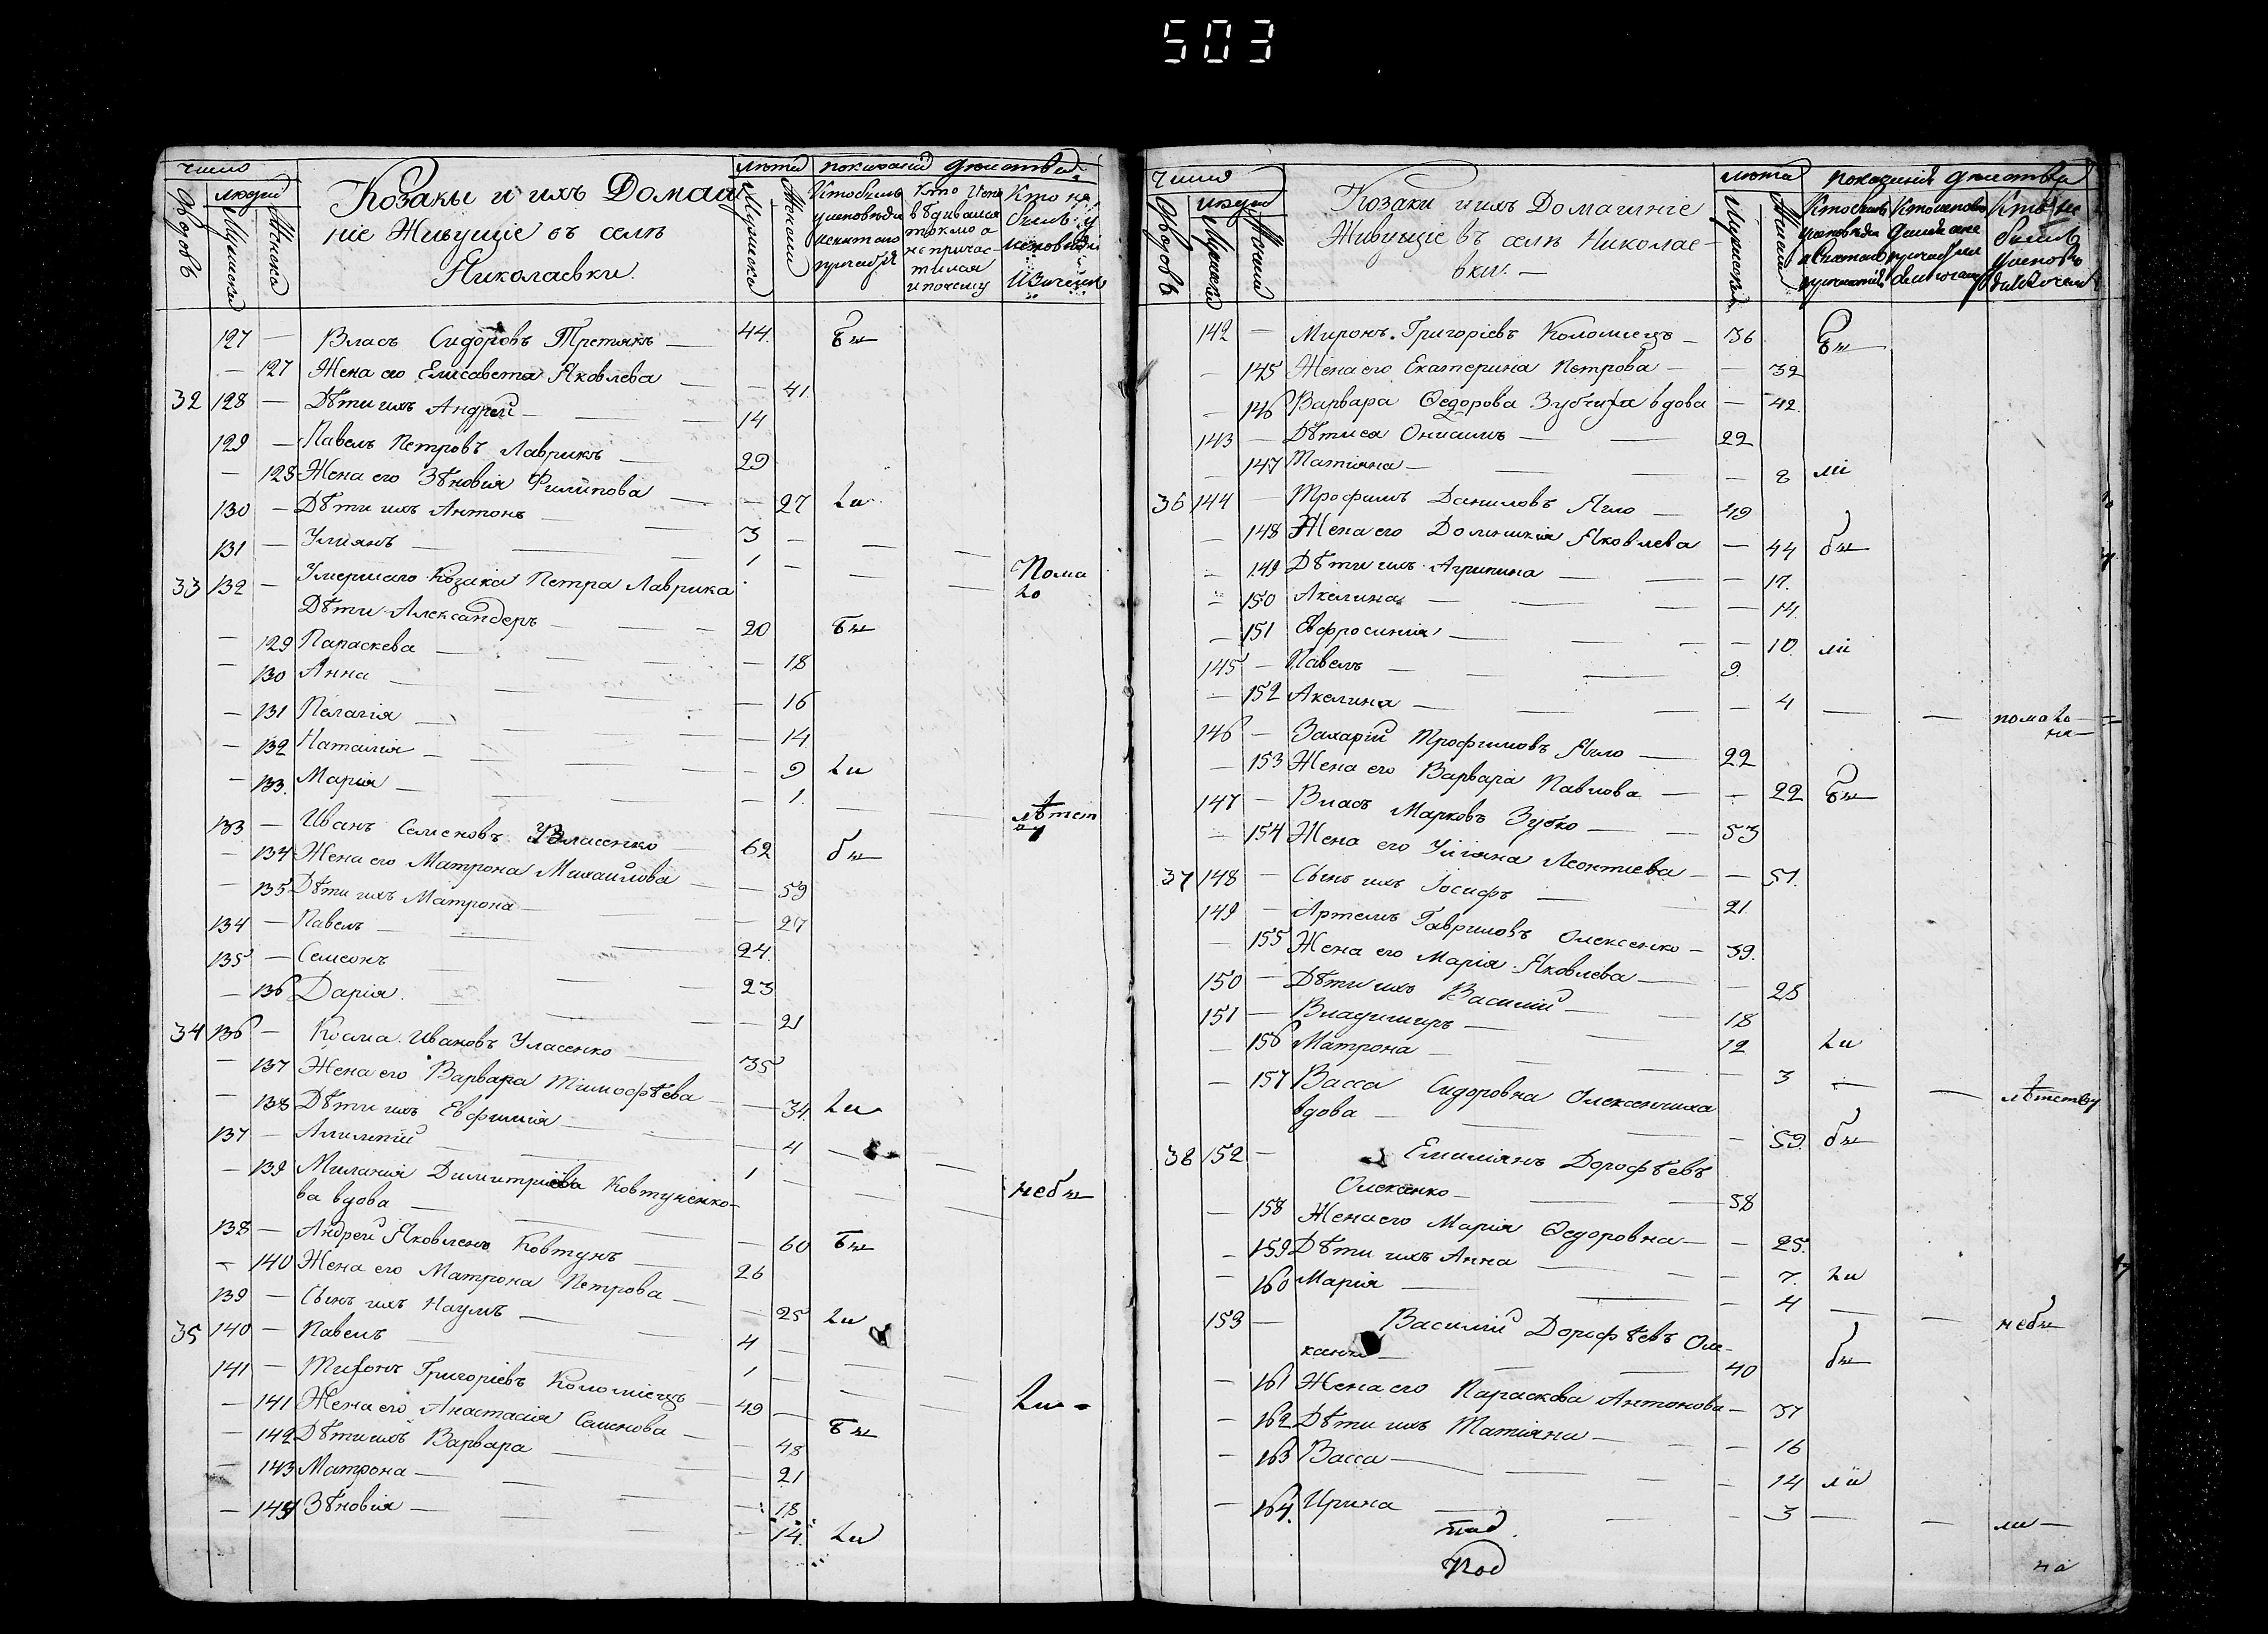 503
число
людей
Дворовъ
Мужеска
Женска
Козаки и ихъ Домаш
ніе Живущіе въ селѣ
Николаевки.
лѣта
Мужеска
Женска
показаніе дѣиства
Ктобылъ
уисповѣди
исвятаго
причастія
кто испо
вѣдивался
токмо а
не причас
тился
и почему
Кто не
билъ у
исповѣди
127 — Власъ Сидоровъ Третякъ — 44. бы
— 127 Жена его Елисавета Яковлева — — 41.
32 128 — Дѣти ихъ Андрей — 14
129 — Павелъ Петровъ Лаврикъ — 29
— 128 Жена его Зѣновія Филипова — — 27 ли
130 — Дѣти ихъ Антонъ — 3 —
131 — Улиянъ — 1 — Пома ло
33 132 — Умершаго Козака Петра Лаврика
Дѣти Александеръ — 20 бы
— 129 Параскева — — 18
— 130 Анна — — 16
— 131 Пелагія — — 14
— 132 Наталія — — 9 ли
— 133. Марія — — 1. — лѣтст ву
133 — Иванъ Семеновъ Уласенко — 62 бы
— 134 Жена его Матрона Михайлова — — 59
— 135 Дѣти ихъ Матрона — — 27
134 — Павелъ — 24.
135 — Семеонъ — 23
— 136 Дарія. — — 21
34 136 — Косма Ивановъ Уласенко — 35
— 137 Жена его Варвара Тимофѣева — — 34. ли
— 138 Дѣти ихъ Евфимія — — 4 —
137 — Алимпій — 1 — небы
— 139 Миланія Димитріева Ковтуненко-
ва вдова — — 60 бы
138 — Андрей Яковленъ Ковтунъ — 26
— 140 Жена его Матрона Петрова — — 25 ли
139 — Сынъ ихъ Наумъ — 4 —
35 140 — Павелъ — 1 — ли -
141 — Тихонъ Григоріевъ Коломіецъ — 49 — бы
— 141 Жена его Анастасія Семенова — — 48
— 142 Дѣти ихъ Варвара — — 21
— 143 Матрона — — 18
— 144 Зѣновія — — 14. ли
Числа
людей
Дворовъ
Мужеска
Женска
Козаки и ихъ Домашніе
Живущіе въ селѣ Николае-
вки. —
лѣта
Мужеска
Женска
показаніе дѣиства
Ктобылъ
уисповѣди
исвятаго
причастія
Ктоисповѣ
Кто не
билъ
уисповѣ
142 — Миронъ Григоріевъ Коломіецъ — 36 бы
— 145 Жена его Екатерина Петрова — — 32
— 146 Варвара Ѳедорова Зубчиха вдова — 42.
143 — Дѣти ея Онисимъ — 22
— 147 Татіяна — — 8 ли
36 144 — Трофимъ Даниловъ Ягло — 49
— 148 Жена его Домникія Яковлева — 44 бы
— 149 Дѣти ихъ Агрипина — — 17.
— 150 Акелина — — 14.
— 151 Евфросинія — — 10. ли
145 — Павелъ — 9.
— 152 Акелина — — 4 — — помало —
146 — Захарій Трофимовъ Ягло — 22
— 153 Жена его Варвара Павлова — — 22 бы
147 — Власъ Марковъ Зубко — 53
— 154 Жена его Уліяна Леонтиева — — 51.
37 148 — Сынъ ихъ Іосифъ — 21.
149 — Артемъ Гавриловъ Олексенко — 39.
— 155 Жена его Марія Яковлева — — 28
150 — Дѣти ихъ Василій — 18
151 — Владимиръ — 12 ли
— 156 Матрона — — 3 — — лѣтству
— 157 Васса Сидоровна Олексенчиха
вдова — — 59. бы
38 152 — Емиліянъ Дорофѣевъ
Олексенко — 58
— 158 Жена его Марія Ѳедоровна — — 25.
— 159 Дѣти ихъ Анна — — 7. ли
— 160 Марія — — 4 — — небы
153 — Василій Дорофѣевъ Оле-
ксенко — 40 бы
— 161 Жена его Параскева Антонова — 37
— 162 Дѣти ихъ Татіяна — — 16
— 163 Васса — — 14 ли
— 164. Ирина — — 3 — — ли —
Под